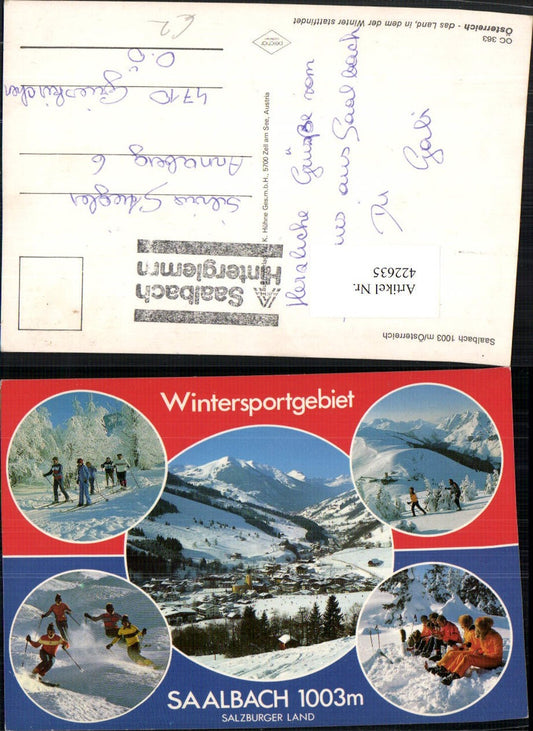 €2
OC 363
Österreich - das Land, in dem der Winter stattfindet
Herzliche Grüße vom
uns aus Saalbach
Gabi
K. Hühne Ges.m.b.H., 5700 Zell am See, Austria
Annaberg 6
4710
O.Ö
Saalbach
Hinterglemm
Artikel Nr.
422635
Saalbach 1003 m/Österreich
Wintersportgebiet
SAALBACH 1003m
SALZBURGER LAND